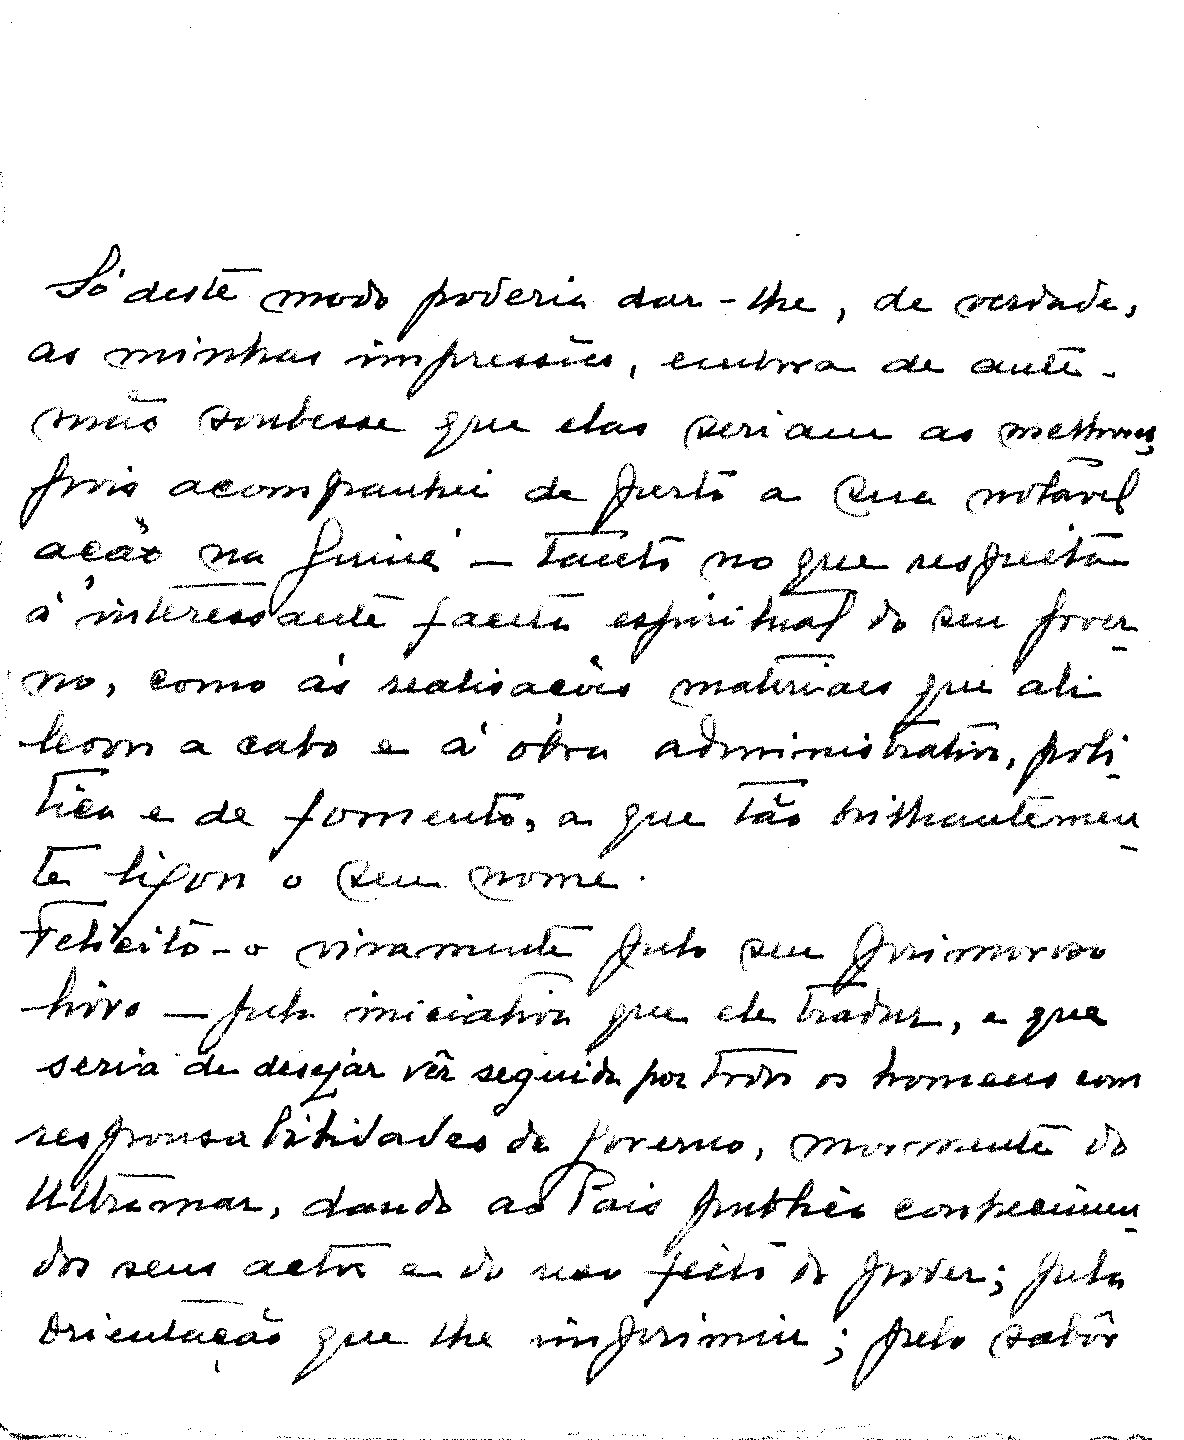 Só deste modo poderia dar-lhe, de verdade,
as minhas impressões, embora de ante-
mão soubesse que elas seriam as melhores,
pois acompanhei de perto a sua notável
ação na Guiné — tanto no que respeita
à interessante faceta espiritual do seu gover-
no, como às realisações materiaes que ali
levou a cabo e à obra administrativa, poli-
tica e de fomento, a que tão brilhantemen-
te ligou o seu nome.
Felicito-o vivamente pelo seu primoroso
livro — pela iniciativa que ele traduz, e que
seria de desejar vêr seguida por todos os homens com
responsabilidades de governo, mormente do
Ultramar, dando ao País publico conhecimen-
dos seus actos e do seu feito do poder; pela
orientação que lhe imprimiu; pelo sabôr